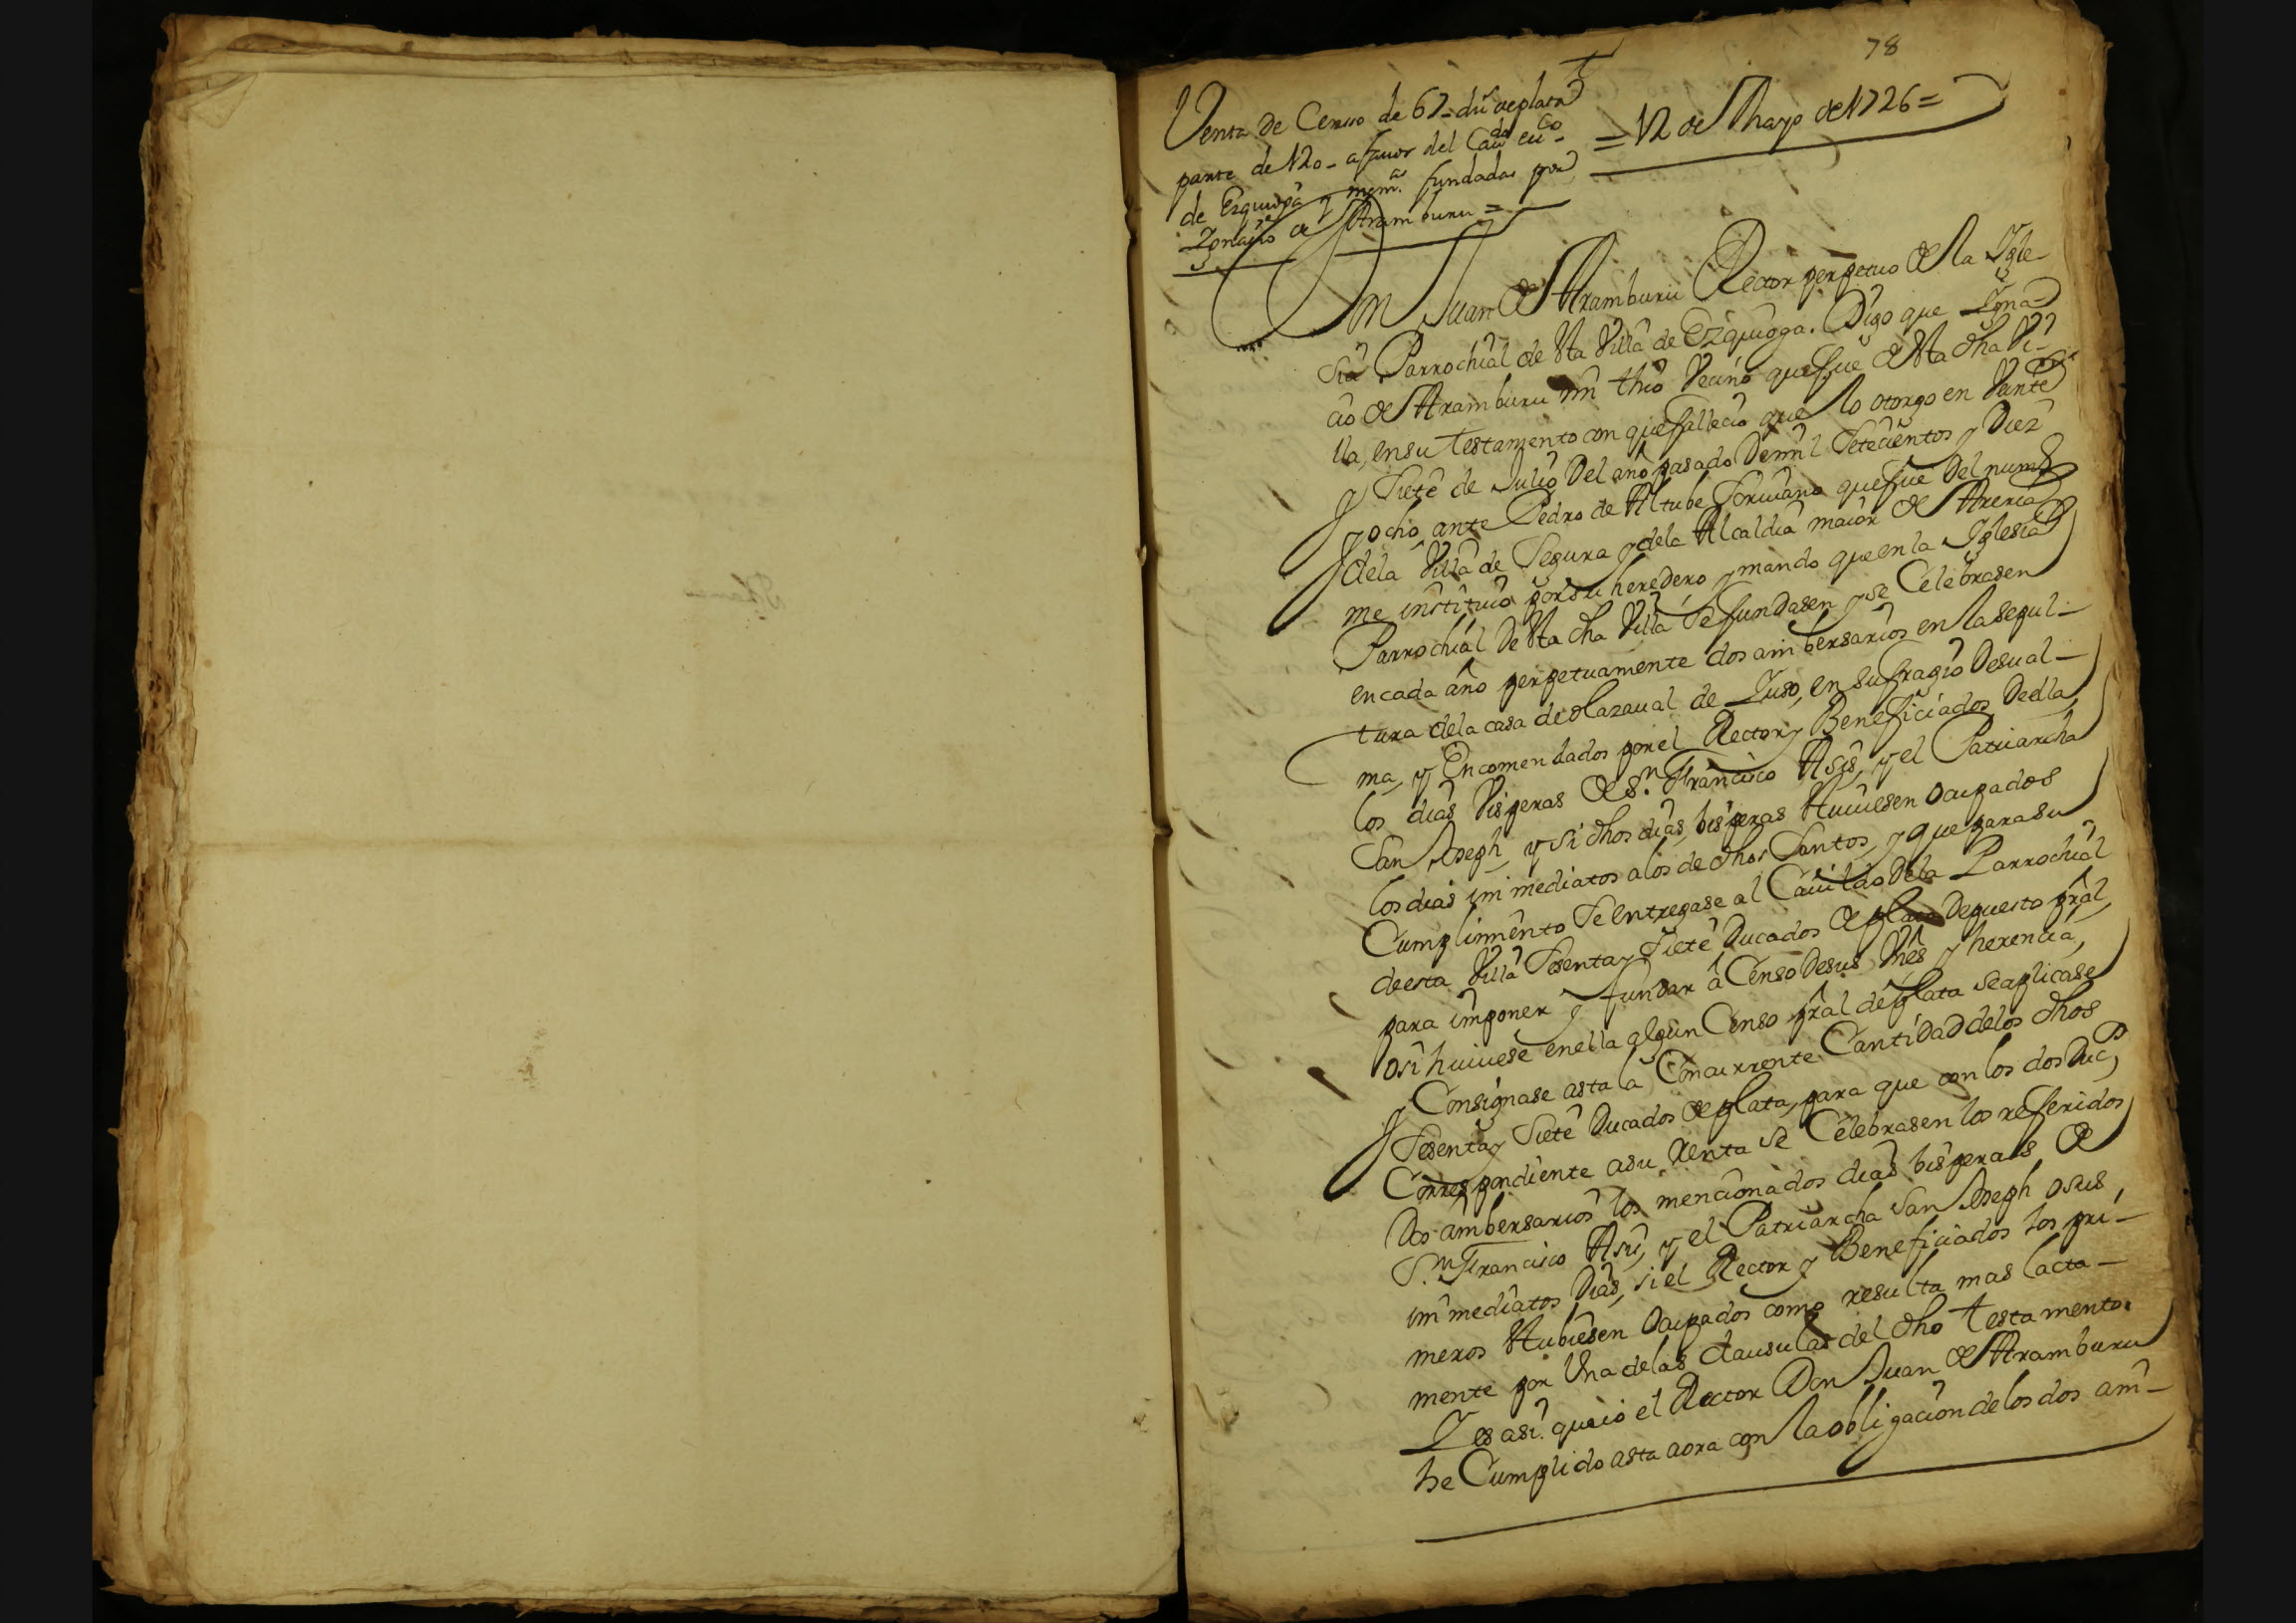 78
Venta de Censo de 67 du.s de plata
parte de 120 - a fauor del Cau.do ecc.co
de Ezquioga y mem.as fundadas por
Ygnacio de Aramburu =
= 12 de Mayo de 1726 =
Don Juan de Aramburu Rector perpetuo de la Ygle-
sia Parrochial de sta Villa de Ezquioga. Digo que Ygna-
cio de Aramburu mi thio Vecino que fue de sta dha Vi-
lla, en su Testamento con que fallecio que lo otorgo en Veinte
y Siete de Julio Del año pasado De mil Setecientos y Diez
y ocho, ante Pedro de Altube Scriuano que fue Del num.o
de la Villa de Segura y de la Alcaldia maior de Areria
me instituio por su heredero y mando que en la Yglesia
Parrochial De sta dha Villa Se fundasen y se Celebrasen
en cada año perpetuamente dos anibersarios en la sepul-
tura de la casa de Olazaual de Yuso, en sufragio De su al-
ma, y Encomendados por el Rector y Beneficiados De ella,
los dias Visperas de S.n Francisco Asis, y el Patriarcha
San Joseph, y Si dhos dias, bisperas Huuiesen ocupados
los dias immediatos a los de dhos Santos, y que para su
Cumplimiento Se entregase al Cauildo De la Parrochial
de esta Villa Sesenta y Siete Ducados de plata De puesto pral,
para imponer y fundar â Censo De sus Vnes y herencia,
o si huiuese en ella algun Censo pral de plata se aplicase
y Consignase asta la Concurrente Cantidad de los dhos
Sesenta y Siete Ducados de plata, para que con los dos Duc.s
Correspondiente a su Renta se Celebrasen los referidos
Dos anibersarios los mencionados dias bisperas de
S.n Francisco Asis, y el Patriarcha San Joseph o sus
immediatos Dias, si el Rector y Beneficiados los pri-
meros Hubiesen ocupados como resulta mas lacta-
mente por Vna de las clausulas del dho Testamento.
Y es asi que io el Rector Don Juan de Aramburu
he Cumplido asta aora con la obligacion de los dos ani-